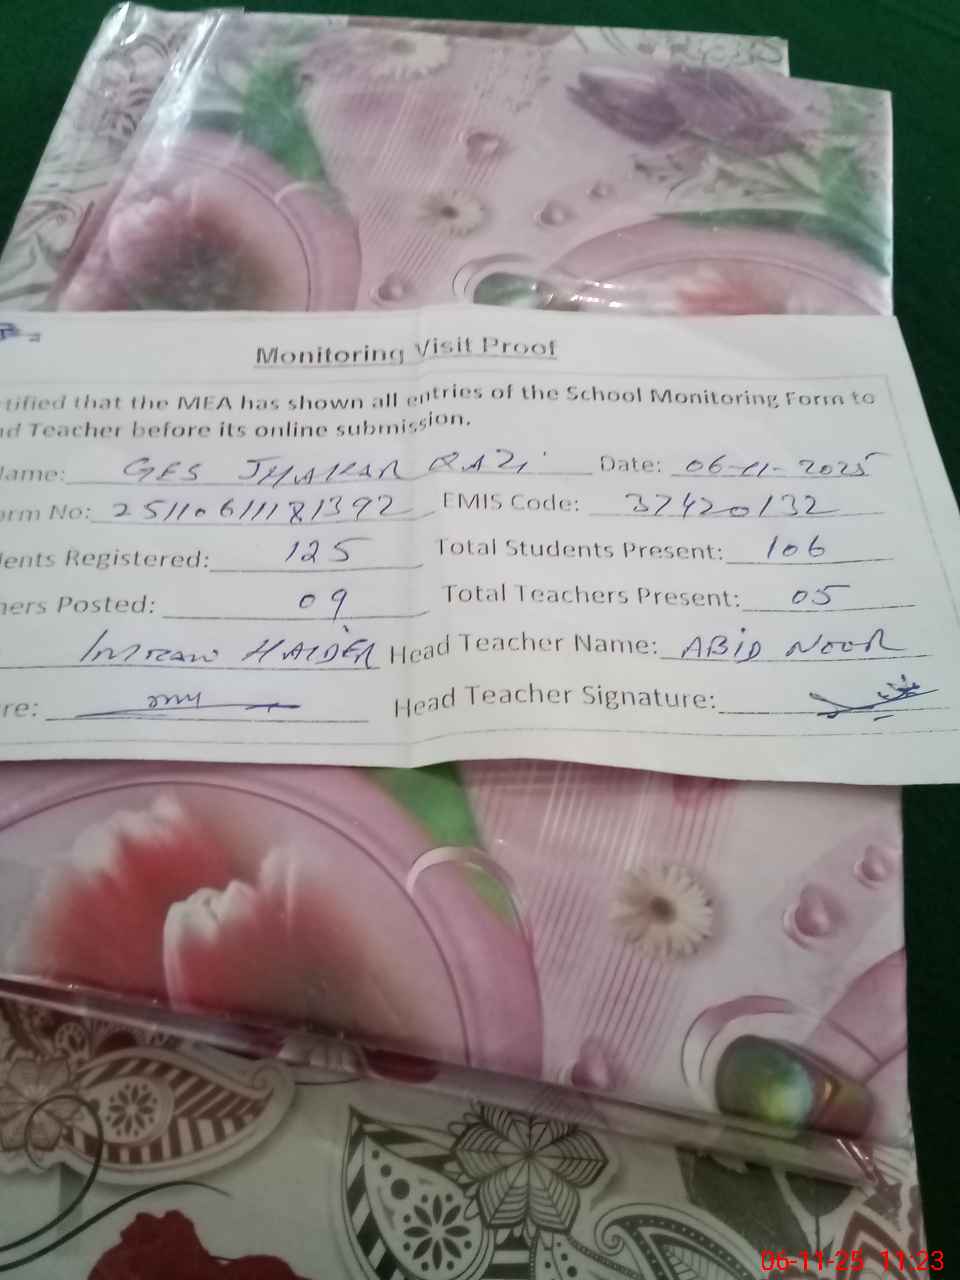 Monitoring Visit Proof
tified that the MEA has shown all entries of the School Monitoring Form to
d Teacher before its online submission.
ame: GES JHAKAR QAZI Date: 06-11-2025
rm No: 251106111181392 EMIS Code: 37420132
ents Registered: 125 Total Students Present: 106
ers Posted: 09 Total Teachers Present: 05
Imran HAIDER Head Teacher Name: ABID NOOR
re: Head Teacher Signature:
06-11-25 11:23